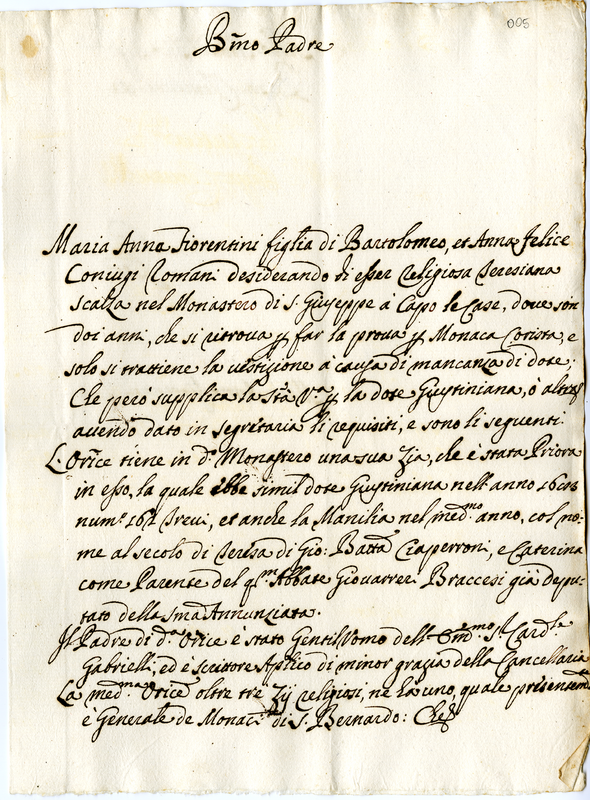 005
B.mo Padre
Maria Anna Fiorentini figlia di Bartolomeo, et Anna Felice
Coniugi Romani desiderando di esser religiosa Teresiana
scalza nel Monastero di S. Giuseppe à Capo le Case, dove son
doi anni, che si ritrova p far la prova p Monaca Corista, e
solo si trattiene la vestizione à causa di mancanza di dote.
Che però supplica la Stà V.a p la dote Giustiniana, ò altra
avendo dato in segretaria li requisiti, e sono li seguenti.
L'Orice tiene in d.o Monastero una sua Zia, che è stata Priora
in esso, la quale ebbe simil dote Giustiniana nell'anno
num.o Brevi, et anche la Manilia nel med.mo anno, col no-
me al secolo di Teresa di Gio: Batta Ciaperroni, e Caterina
come Parente del q.m Abbate Braccesi già Depu-
tato della Sma Annunziata.
Il Padre di d.a Orice è stato Gentil Vomo dell' Em.mo S.r Card.le
Gabrielli, ed è scrittore Aplico di minor grazia della Cancellaria
La med.ma Orice oltre tre Zij religiosi, ne hà uno, quale presentem.te
è Generale de Monaci di S. Bernardo: Che